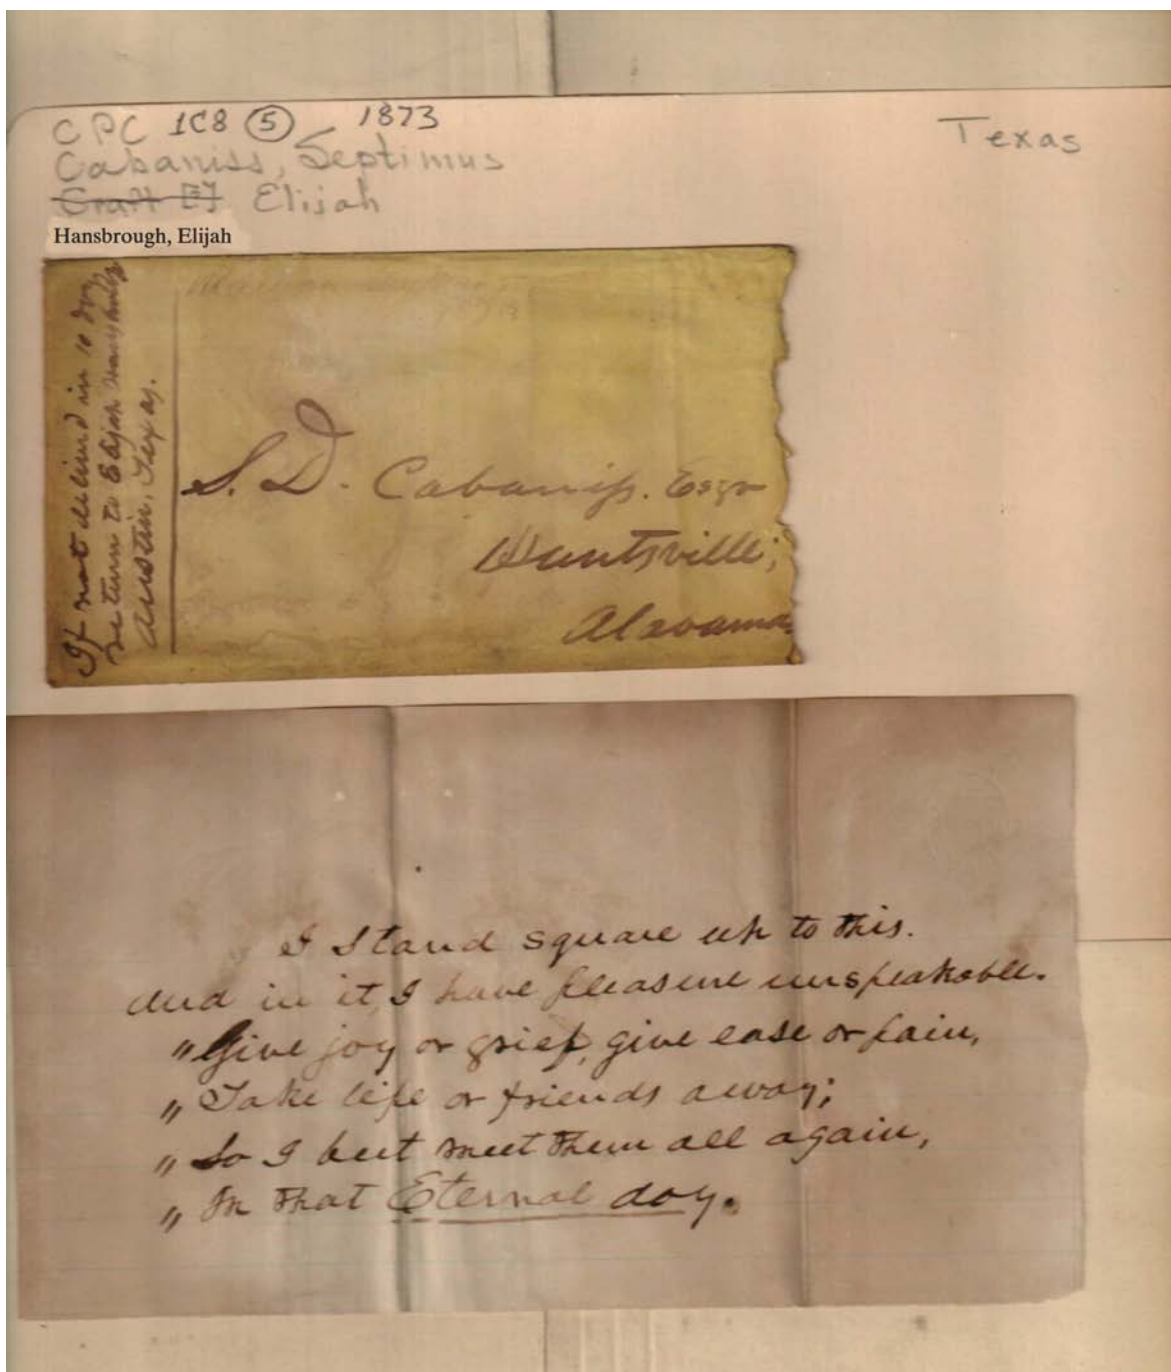 CPC 1C8 ⑤ 1873
Texas
Cabaniss, Septimus
Craft [E] Elijah
Hansbrough, Elijah
If not delivered in 10 days
return to Elijah
Austin, Texas.
S. D. Cabaniss. Esqr
Huntsville;
Alabama.
I stand square up to this.
And in it, I have pleasure unspeakable.
"Give joy or grief, give ease or pain,
" Take life or friends away;
" So I but meet them all again,
" In that Eternal day.